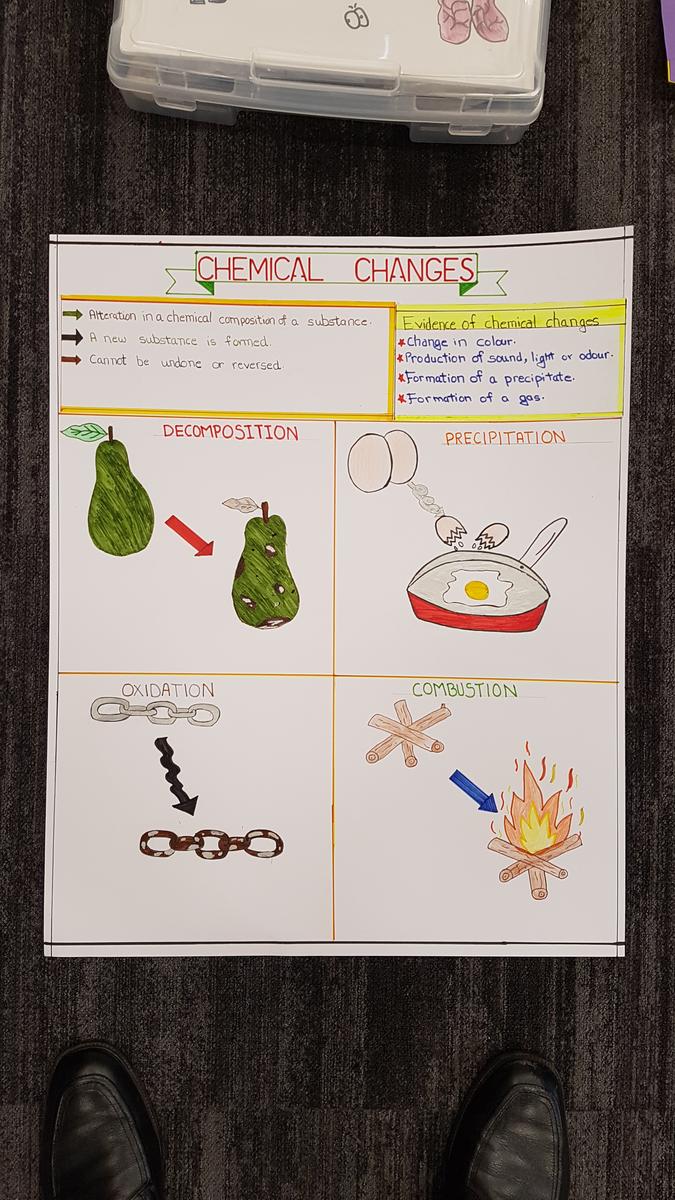 CHEMICAL CHANGES
Alteration in a chemical composition of a substance.
A new substance is formed.
Cannot be undone or reversed.
Evidence of chemical changes
Change in colour.
Production of sound, light or odour.
Formation of a precipitate.
Formation of a gas.
DECOMPOSITION
PRECIPITATION
OXIDATION
COMBUSTION